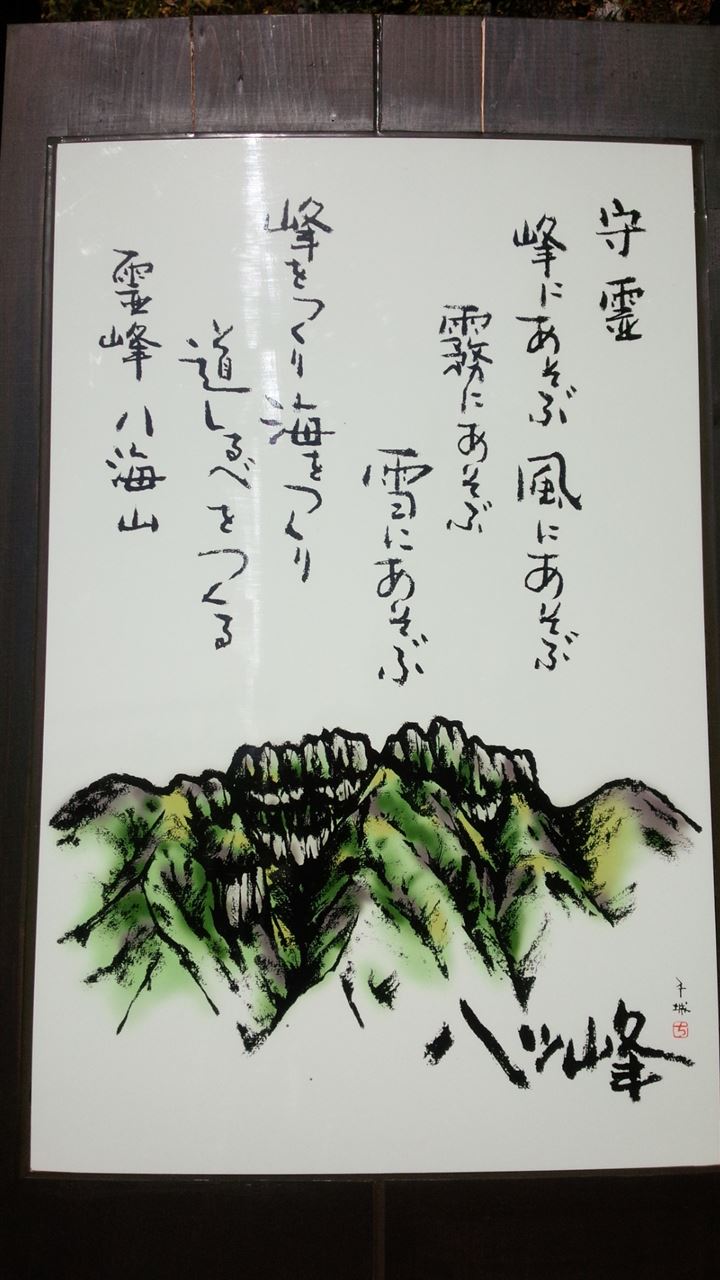 守霊
峰にあそぶ 風にあそぶ
霧にあそぶ
雪にあそぶ
峰をつくり 海をつくり
道しるべをつくる
霊峰 八海山
八ツ峰
千城